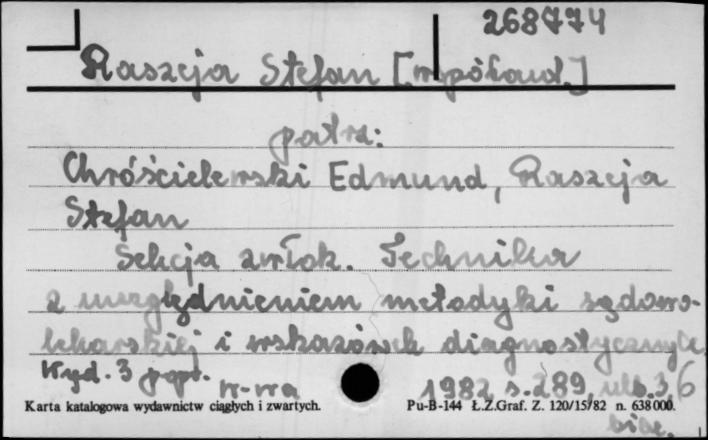 268774
Raszeja Stefan [współaut.]
patrz:
Chróścielewski Edmund, Raszeja
Stefan
Sekcja zwłok. Technika
z uwzględnieniem metodyki sądowo-
lekarskiej i wskazówek diagnostycznych.
Wyd. 3 popr. W-wa 1982, s. 289, nlb. 36
bibl.
Karta katalogowa wydawnictw ciągłych i zwartych. Pu-B-144 Ł.Z.Graf. Z. 120/15/82 n. 638000.